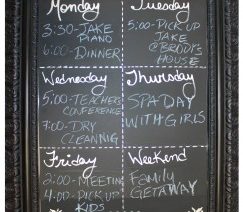 Monday
3:30-JAKE
PIANO
6:00-DINNER
Tuesday
5:00-PICK UP
JAKE
@BRODY'S
HOUSE
Wednesday
5:00-TEACHERS
CONFERENCE
7:00-DRY
CLEANNIG
Thursday
SPA DAY
WITH GIRLS
Friday
2:00-MEETING
4:00-PICK UP
KIDS
Weekend
FAMILY
GETAWAY